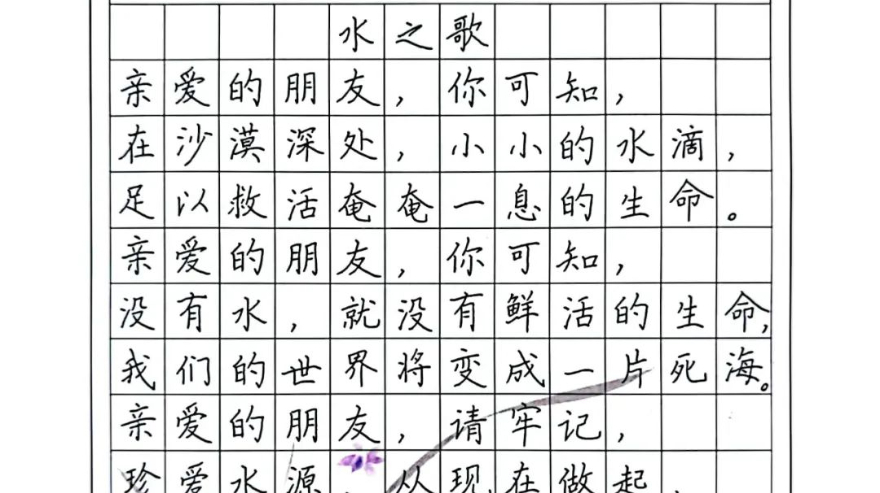 水之歌
亲爱的朋友，你可知，
在沙漠深处，小小的水滴，
足以救活奄奄一息的生命。
亲爱的朋友，你可知，
没有水，就没有鲜活的生命，
我们的世界将变成一片死海。
亲爱的朋友，请牢记，
珍爱水源，从现在做起，